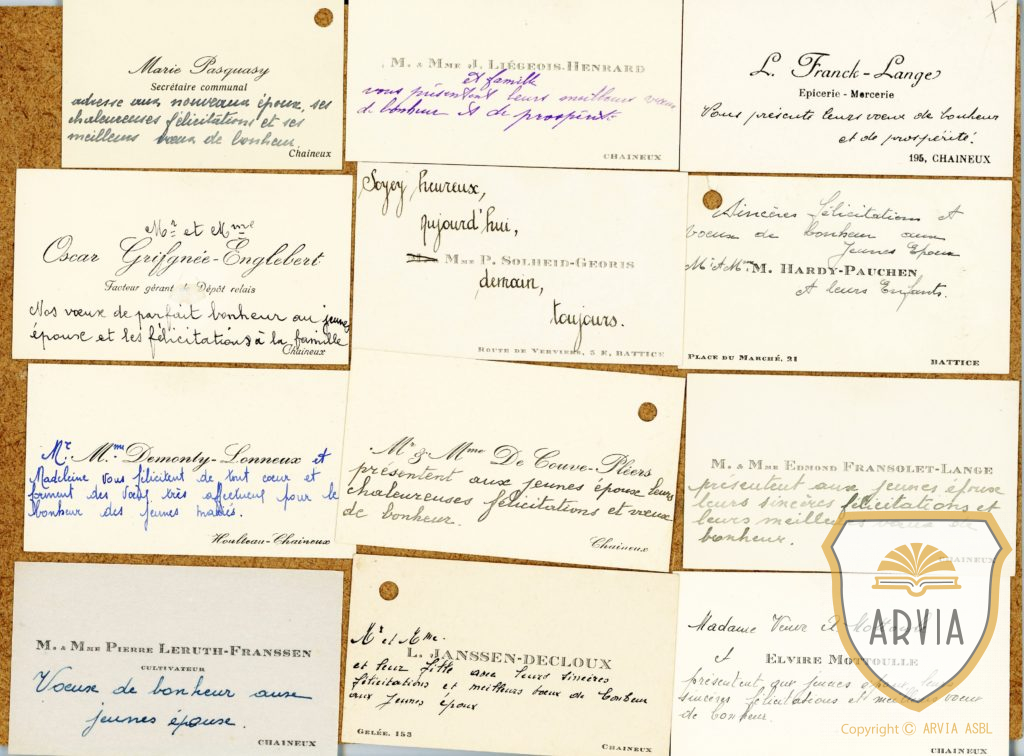 Marie Pasquasy
Secrétaire communal
adresse aux nouveaux époux ses
chaleureuses félicitations et ses
meilleurs vœux de bonheur.
Chaineux
M. & Mme J. Liégeois-Henrard
et famille
vous présentent leurs meilleurs vœux
de bonheur et de prospérité.
CHAINEUX
X
L. Franck-Lange
Epicerie - Mercerie
Vous présente leurs vœux de bonheur
et de prospérité.
195, CHAINEUX
Mr et Mme
Oscar Grifgnée-Englebert
Facteur gérant du Dépôt relais
Nos vœux de parfait bonheur au jeunes
époux et les félicitations à la famille
Chaineux
Soyez heureux,
aujourd'hui,
Mme P. Solheid-Georis
demain,
toujours.
Route de Verviers, 5 E, BATTICE
Sincères félicitations et
vœux de bonheur aux
Jeunes Epoux
Mr et Mme M. Hardy-Pauchen
et leurs Enfants.
Place du Marché, 21
BATTICE
Mr. Mme Demonty-Lonneux et
Madeleine vous félicitent de tout cœur et
forment des vœux très affectueux pour le
bonheur des jeunes mariés.
Houlteau-Chaineux
Mr & Mme De Couve-Pléers
présentent aux jeunes époux leurs
chaleureuses félicitations et vœux
de bonheur.
Chaineux
M. & Mme Edmond Fransolet-Lange
présentent aux jeunes époux
leurs sincères félicitations et
leurs meilleurs vœux de
bonheur.
CHAINEUX
M. & Mme Pierre Leruth-Franssen
CULTIVATEUR
Vœux de bonheur aux
jeunes époux.
CHAINEUX
Mr et Mme.
L. Janssen-Decloux
et leur fille avec leurs sincères
félicitations et meilleurs vœux de bonheur
aux jeunes époux
Gelée, 153
Chaineux
Madame Veuve Mottoulle
et
Elvire Mottoulle
présentent aux jeunes époux leurs
sincères félicitations et meilleurs vœux
de bonheur.
CHAINEUX
ARVIA
Copyright © ARVIA ASBL